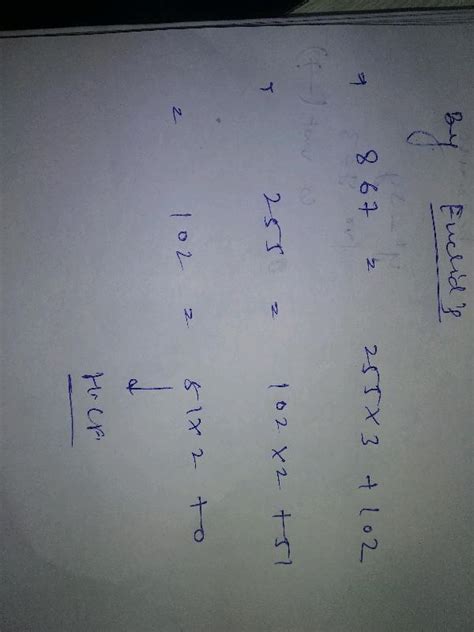 By Euclid's
→ 867 = 255×3 + 102
→ 255 = 102×2 + 51
= 102 = 51×2 + 0
↓
H.C.F.